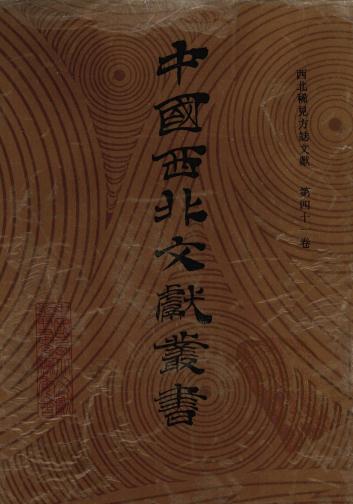 西北稀見方誌文獻 第四十 卷
中國西北文獻叢書